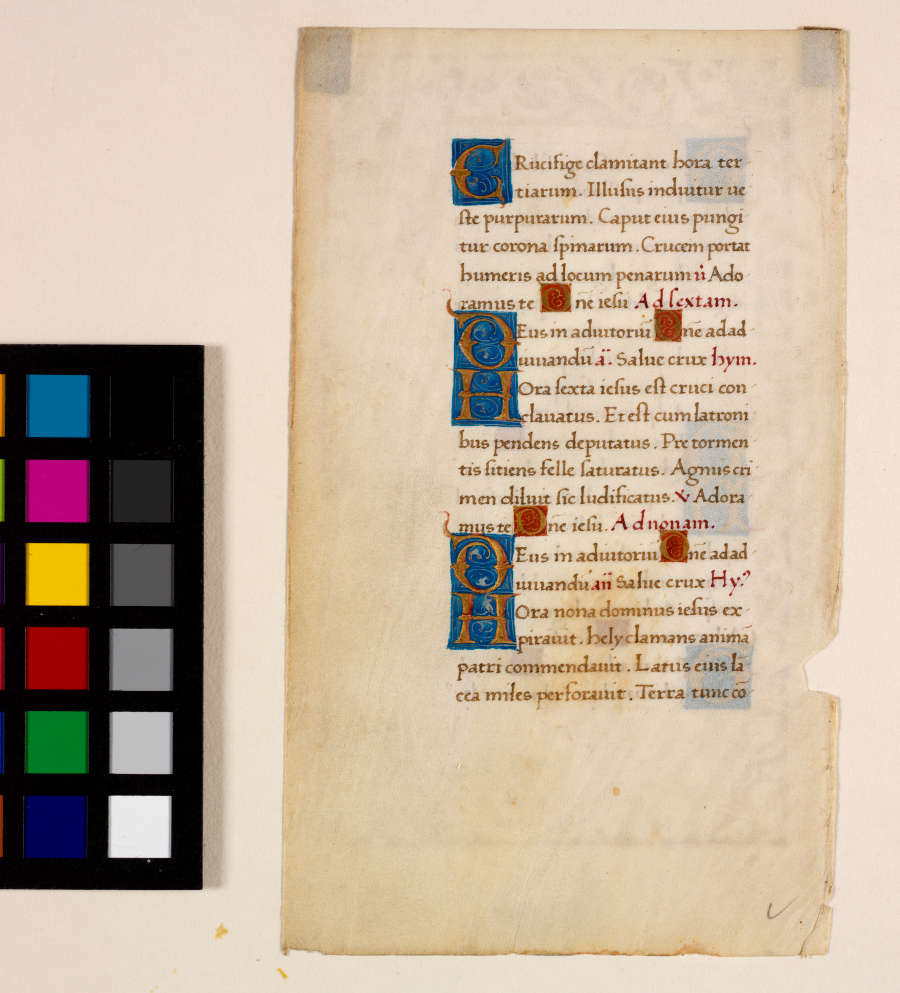 CRucifige clamitant hora ter
tiarum. Illusus induitur ue
ste purpurarum. Caput eius pungi
tur corona spinarum. Crucem portat
humeris ad locum penarum ỉ Ado
ramus te Dne iesu Ad sextam.
DEus in adiutoriū Dn̄e adad
iuuandū ā. Salue crux hym.
HOra sexta iesus est cruci con
clauatus. Et est cum latroni
bus pendens deputatus. Pre tormen
tis sitiens felle saturatus. Agnus cri
men diluit sic ludificatus. ℣ Adora
mus te Dne iesu. Ad nonam.
DEus in adiutoriū Dn̄e adad
iuuandū an̄ Salue crux Hy.
HOra nona dominus iesus ex
pirauit. hely clamans animā
patri commendauit. Latus eius lā
cea miles perforauit. Terra tunc cō